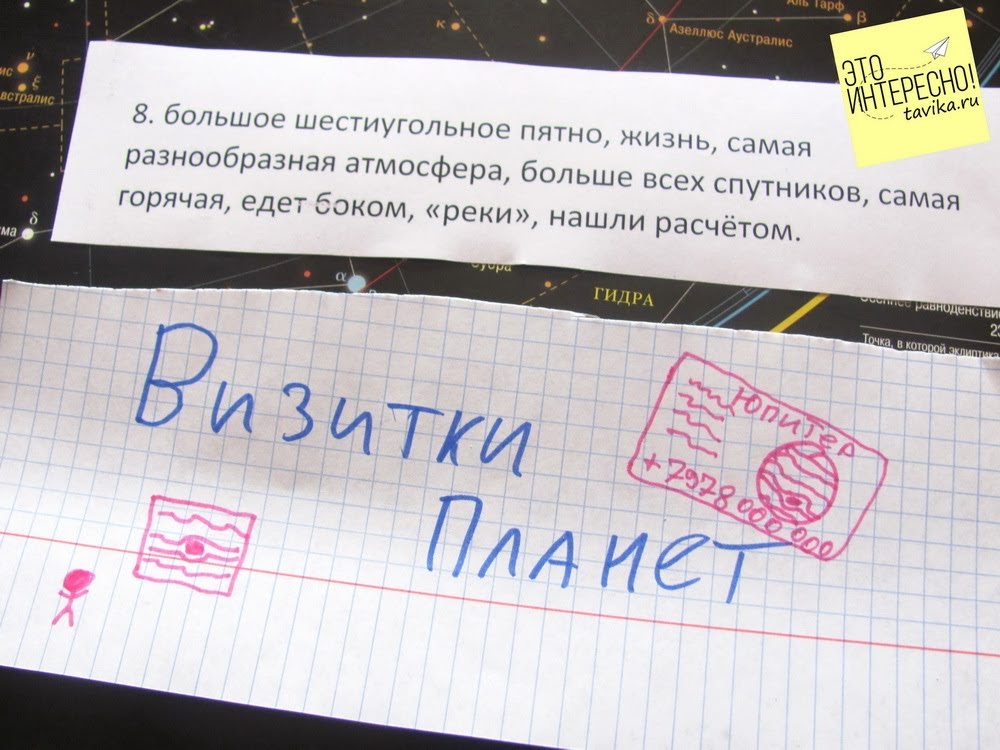 Аль Тарф
κ
δ
β
Азеллюс Аустралис
ν
ис
ξ
встралис
ЭТО
ИНТЕРЕСНО!
tavika.ru
8. большое шестиугольное пятно, жизнь, самая
разнообразная атмосфера, больше всех спутников, самая
горячая, едет боком, «реки», нашли расчётом.
δ
ма
α
ГИДРА
равноденстви
23
Точка, в которой эклиптика
Визитки
Планет
Юпитер
+7978000000